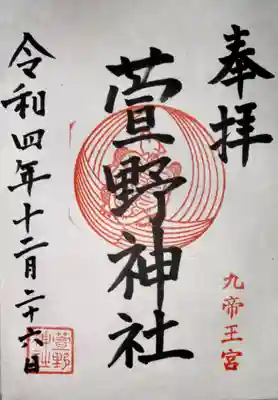 奉拝
九帝王宮
萱野神社
令和四年十二月二十六日
萱野